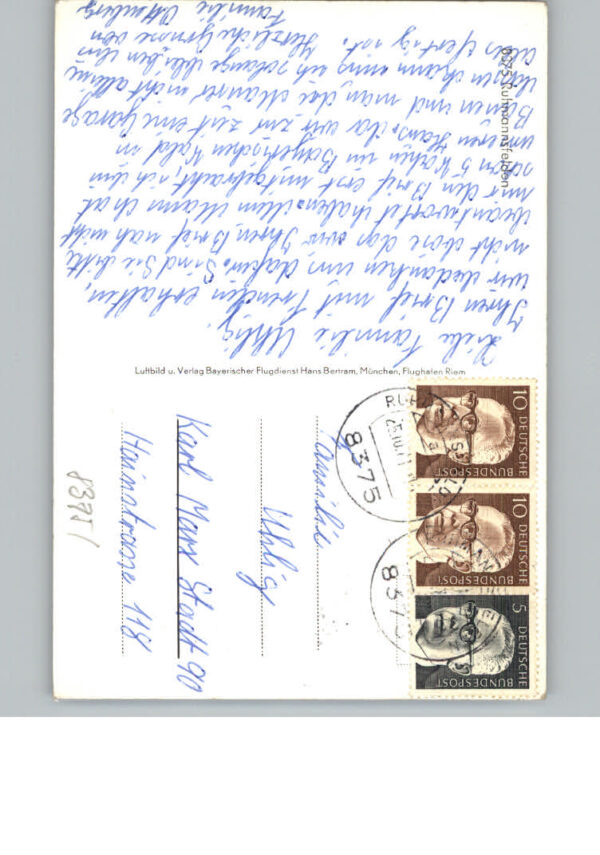 Liebe Familie Uhlig.
Ihren Brief mit Freuden erhalten,
wir bedanken uns dafür. Sind Sie bitte
nicht böse das wir Ihren Brief noch nicht
beantwortet haben. Mein Mann hat
mir den Brief erst mitgebracht, ich bin
schon 5 Wochen im Bayerischen Wald in
unseren Haus. da wir zur zeit eine Garage
Bauen und man die Maurer nicht alleine
lassen kann muss ich solange bleiben bis
alles fertig ist. Herzliche Grüsse von
Familie
8375 Ruhmannsfelden
Luftbild u. Verlag Bayerischer Flugdienst Hans Bertram, München, Flughafen Riem
Familie
Uhlig
Karl Marx Stadt 90
Hainstrasse 118
8375/
10 DEUTSCHE BUNDESPOST
10 DEUTSCHE BUNDESPOST
5 DEUTSCHE BUNDESPOST
8375
8375